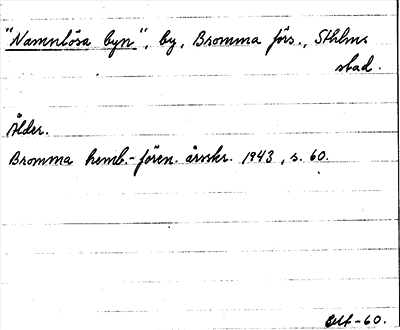 "Namnlösa byn", by, Bromma förs., Sthlms
stad.
Ålder.
Bromma hemb.-fören. årsskr. 1943, s. 60.
-60.